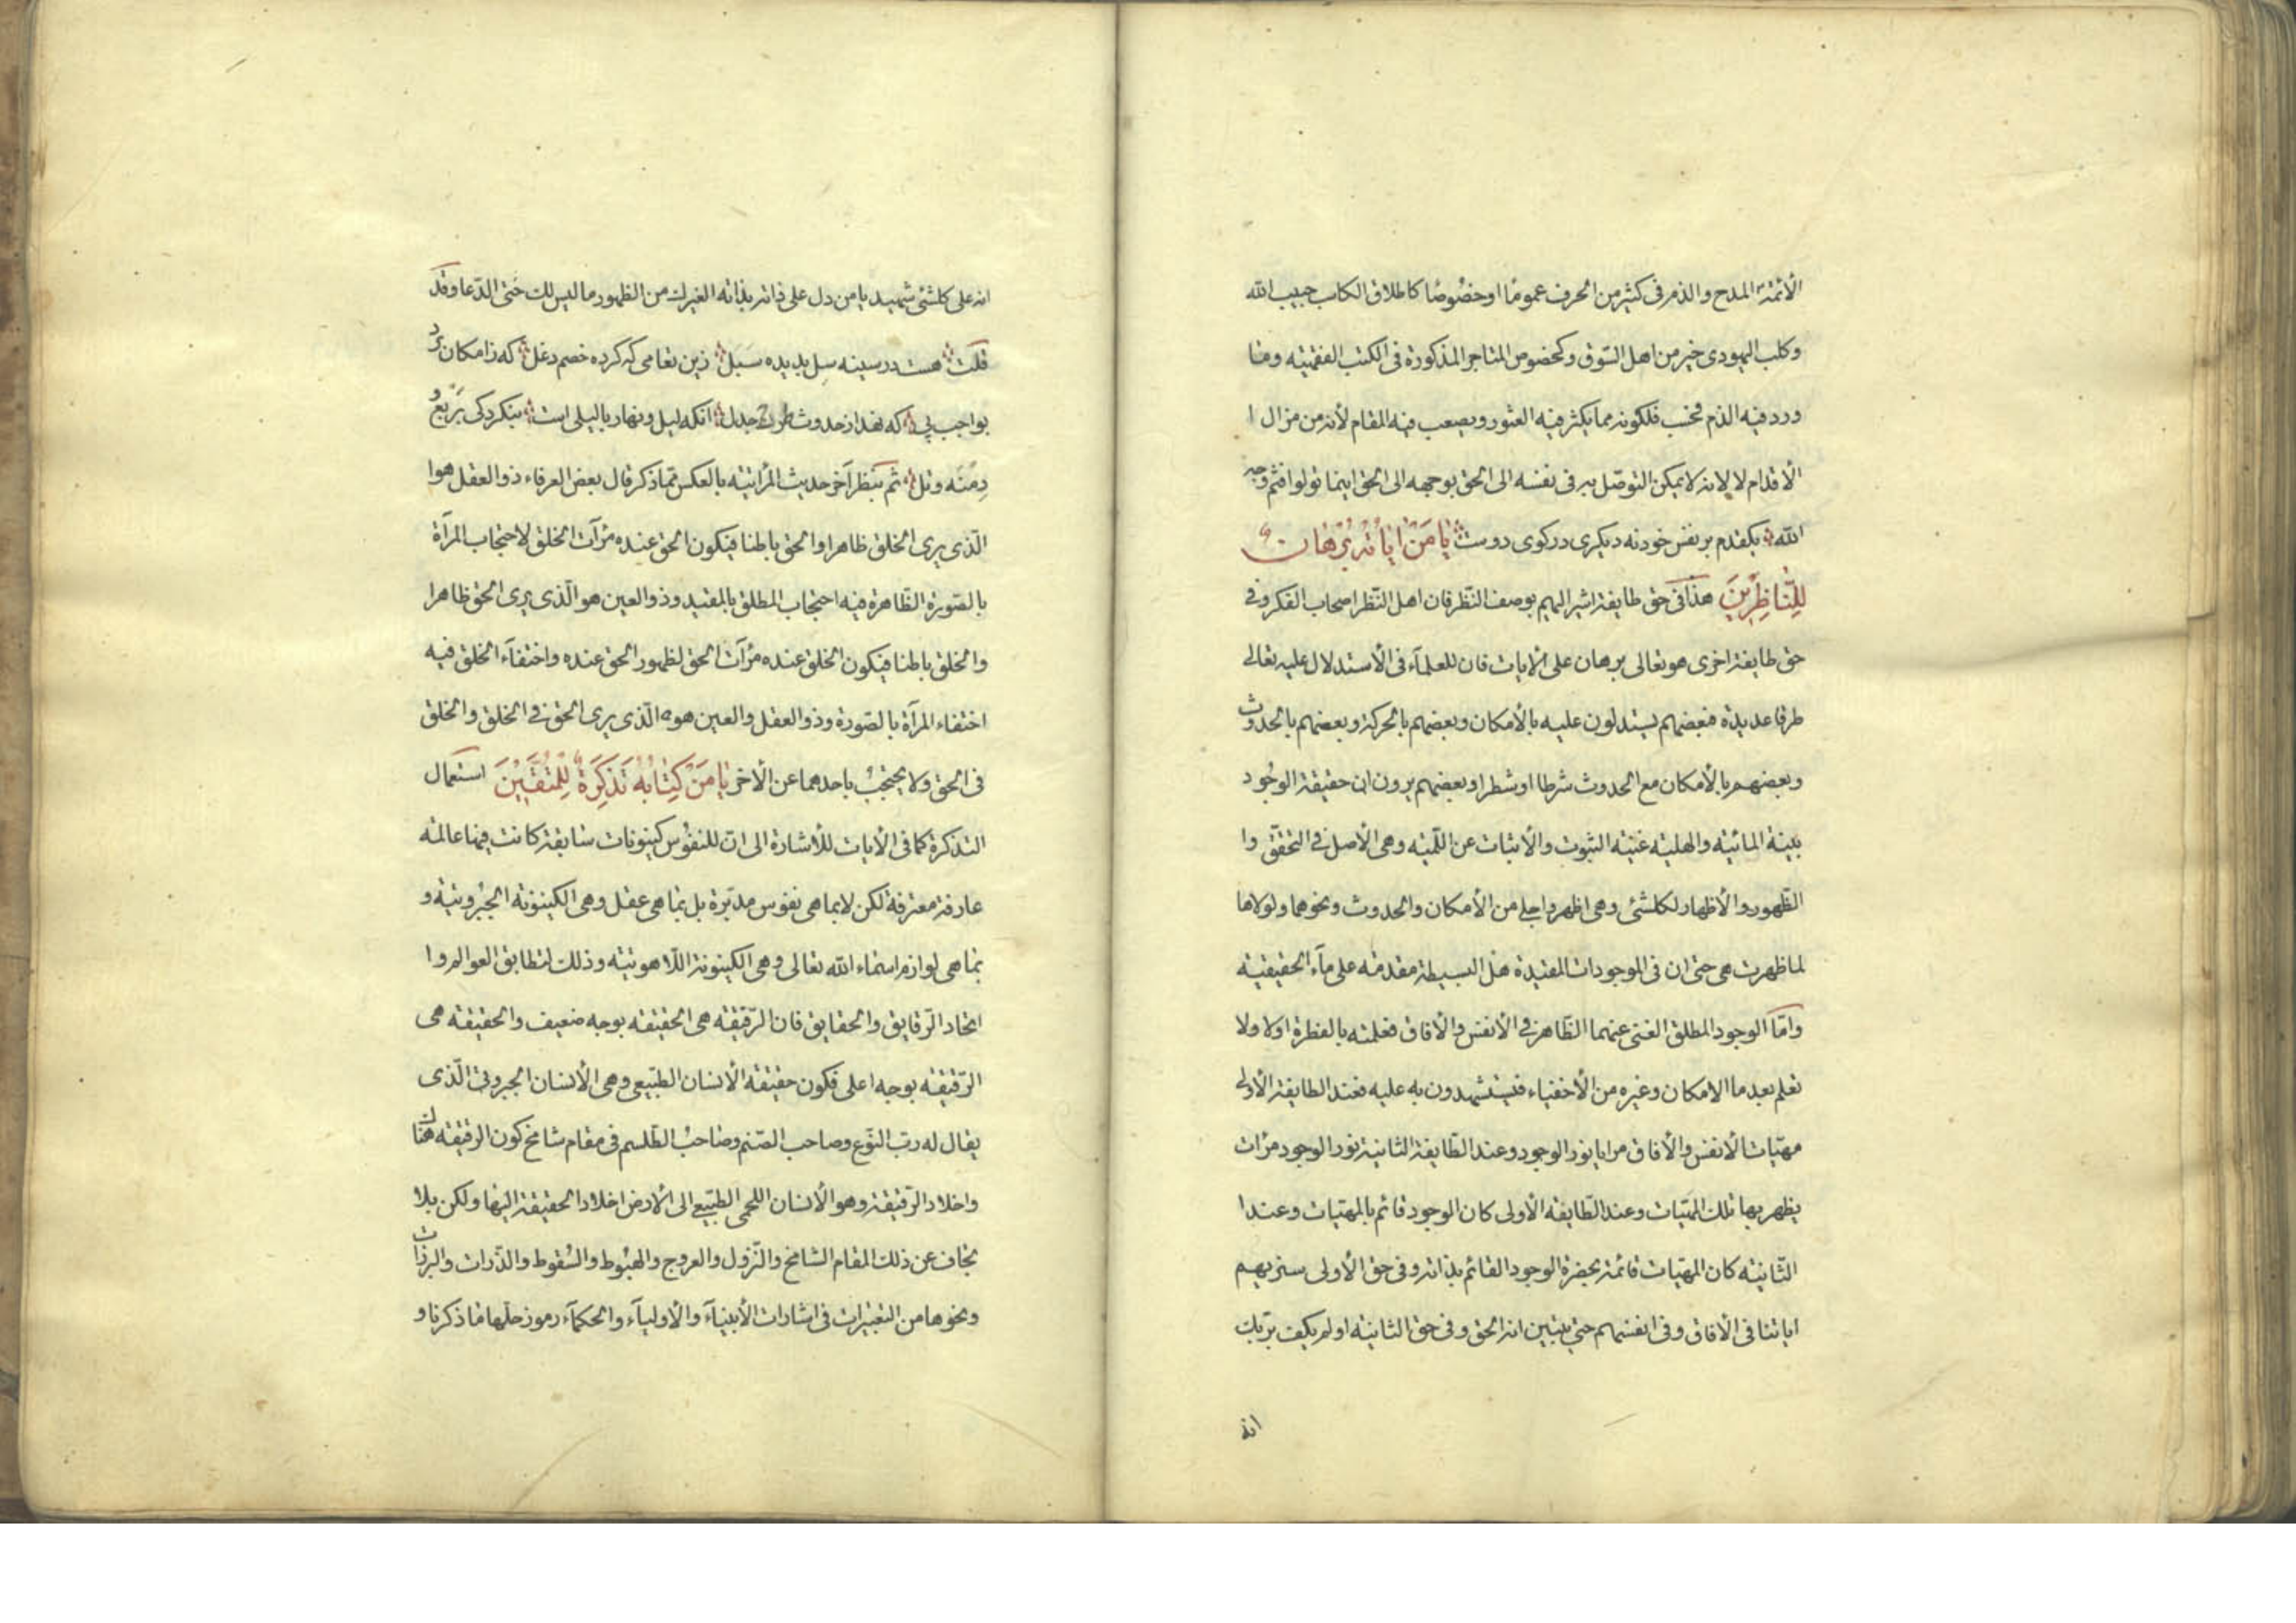 الأئمّة المدح والذم فى كثير من الحرف عموما او خصوصا كاطلاق الكاسب حبيب الله
وكلب اليهودى خير من اهل السّوق وكخصوص المتاجر المذكورة فى الكتب الفقهيّه وما
ورد فيه الذم فحسب فلكونه مما يكثر فيه العثور ويصعب فيه المقام لأنه من مزال ا
الأقدام لا لانه لا يمكن التوصّل به فى نفسه الى الحق بوجهه الى الحق اينما تولوا فثم وجه
الله يكقدم بر نفس خود نه ديكرى در كوى دوست يا مَنْ اياتُهُ بُرْهان
لِلنّاظِرينَ هذا فى حق طايفة اشير اليهم بوصف النّظر فان اهل النّظر اصحاب الفكر وفى
حق طايفة اخرى هو تعالى برهان على الايات فان للعلمآء فى الأستدلال عليه تعالى
طرقا عديدة فبعضهم يستدلون عليه بالأمكان وبعضهم بالحركة وبعضهم بالحدوث
وبعضهم بالأمكان مع الحدوث شرطا او شطرا وبعضهم يرون ان حقيقة الوجود
بيّنة المائيّه والهليّه غنيّه الثبوت والأثبات عن اللّميّه وهى الأصل فى التحقّق وا
الظّهور والأظهار لكلشئ وهى اظهر واجلى من الأمكان والحدوث ونحوهما ولولاها
لما ظهرت هى حتى ان فى الموجودات المقيدة هل البسيطة مقدمه على مآء الحقيقيّه
وامّا الوجود المطلق الغنى عنهما الظّاهر فى الأنفس والأفاق فعلمته بالفطرة اولا ولا
تعلم بعد ما الامكان وغيره من الأخفياء فيستشهدون به عليه فعند الطايفة الأولى
مهيّات الأنفس والأفاق مرايا نور الوجود وعند الطّايفة الثانية نور الوجود مرات
يظهر بها تلك المهيّات وعند الطّايفه الأولى كان الوجود قائم بالمهيات وعند ا
الثّانيّه كان المهيّات قائمة بحضرة الوجود القائم بذاته وفى حق الأولى سنريهم
اياتنا فى الأفاق وفى انفسهم حتى يتبين انه الحق وفى حق الثانيّه اولم يكف بربّك
انه
انه على كلشئ شهيد يا من دل على ذاته بذاته الغيرك من الظهور ما ليس لك حتى الدّعا وقد
قلت هست در سينه سل بديده سبل زين تعامى كه كرده خصم دغل كه ز امكان برد
بواجب پى كه نهد از حدوث طرح جدل انكه ليل ونهار با ليلى است ننكرد كى بربع و
دِمنَه وتل ثم بنظر آخر حديث المراتيّه بالعكس مما ذكر قال بعض العرفاء ذو العقل هو ا
الّذى يرى الخلق ظاهرا والحق باطنا فيكون الحق عنده مرآت الخلق لاحتجاب المرآة
بالصّورة الظّاهرة فيه احتجاب المطلق بالمقيد وذو العين هو الّذى يرى الحق ظاهرا
والخلق باطنا فيكون الخلق عنده مرآت الحق لظهور الحق عنده واختفآء الخلق فيه
اختفاء المرآة بالصّورة وذو العقل والعين هو الّذى يرى الحق فى الخلق والخلق
فى الحق ولا يحتجب باحدهما عن الأخر يا مَنْ كِتابُهُ تَذكَرَةٌ لِلمُتّقينَ استعمال
التذكرة كما فى الأيات للأشارة الى انّ للنفوس كينونات سابقة كانت فيها عالمه
عارفة معترفة لكن لا بما هى نفوس مدبّرة بل بما هى عقل وهى الكينونة الجبروتيّه و
بما هى لوازم اسماء الله تعالى وهى الكينونة اللّاهوتيّه وذلك لتطابق العوالم وا
اتحاد الرّقايق والحقايق فان الرّقيقه هى الحقيقه بوجه ضعيف والحقيقه هى
الرّقيقه بوجه اعلى فكون حقيقة الأنسان الطّبيعى وهى الأنسان الجبروتى الّذى
يقال له ربّ النّوع وصاحب الصّنم وصاحب الطّلسم فى مقام شامخ كون الرقيقه هناك
واخلاد الرّقيقة وهو الأنسان اللحمى الطبيّعى الى الأرض اخلاد الحقيقة اليها ولكن بلا
تجاف عن ذلك المقام الشامخ والنّزول والعروج والهبوط والسّقوط والذّرات والبرزات
ونحوها من التعبيرات فى اشارات الأنبيآء والأوليآء والحكمآء رموز حلّها ما ذكرنا و